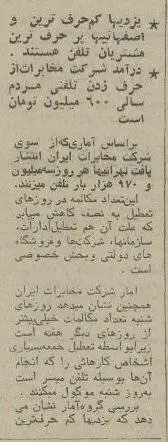 ★ یزدیها کم‌حرف ترین و
اصفهانیها پر حرف ترین
مشتریان تلفن هستند .
★ درآمد شرکت مخابرات‌از
حرف زدن تلفنی مردم
سالی ۶۰۰ میلیون تومان
است
براساس آماری‌که‌از سوی
شرکت مخابرات ایران انتشار
یافت تهرانیها هر روزسه‌میلیون
و ۹۷۰ هزار بار تلفن میزنند.
این‌تعداد مکالمه در روزهای
تعطیل به نصف کاهش میابد
که علت آن هم تعطیل‌ادارات،
سازمانها، شرکت‌ها وفروشگاه
های دولتی وبخش خصوصی
است .
آمار شرکت مخابرات ایران
همچنین نشان میدهد روزهای
شنبه تعداد مکالمات خیلی‌بیشتر
از روزهای دیگر هفته است
زیرابواسطه تعطیل جمعه‌بسیاری
اشخاص کارهائی را که انجام
آن‌ها بوسیله تلفن میسر است
به‌روز شنبه موکول میکنند .
بررسی گروه‌آمار نشان می
دهد که یزدیها کم حرفترین